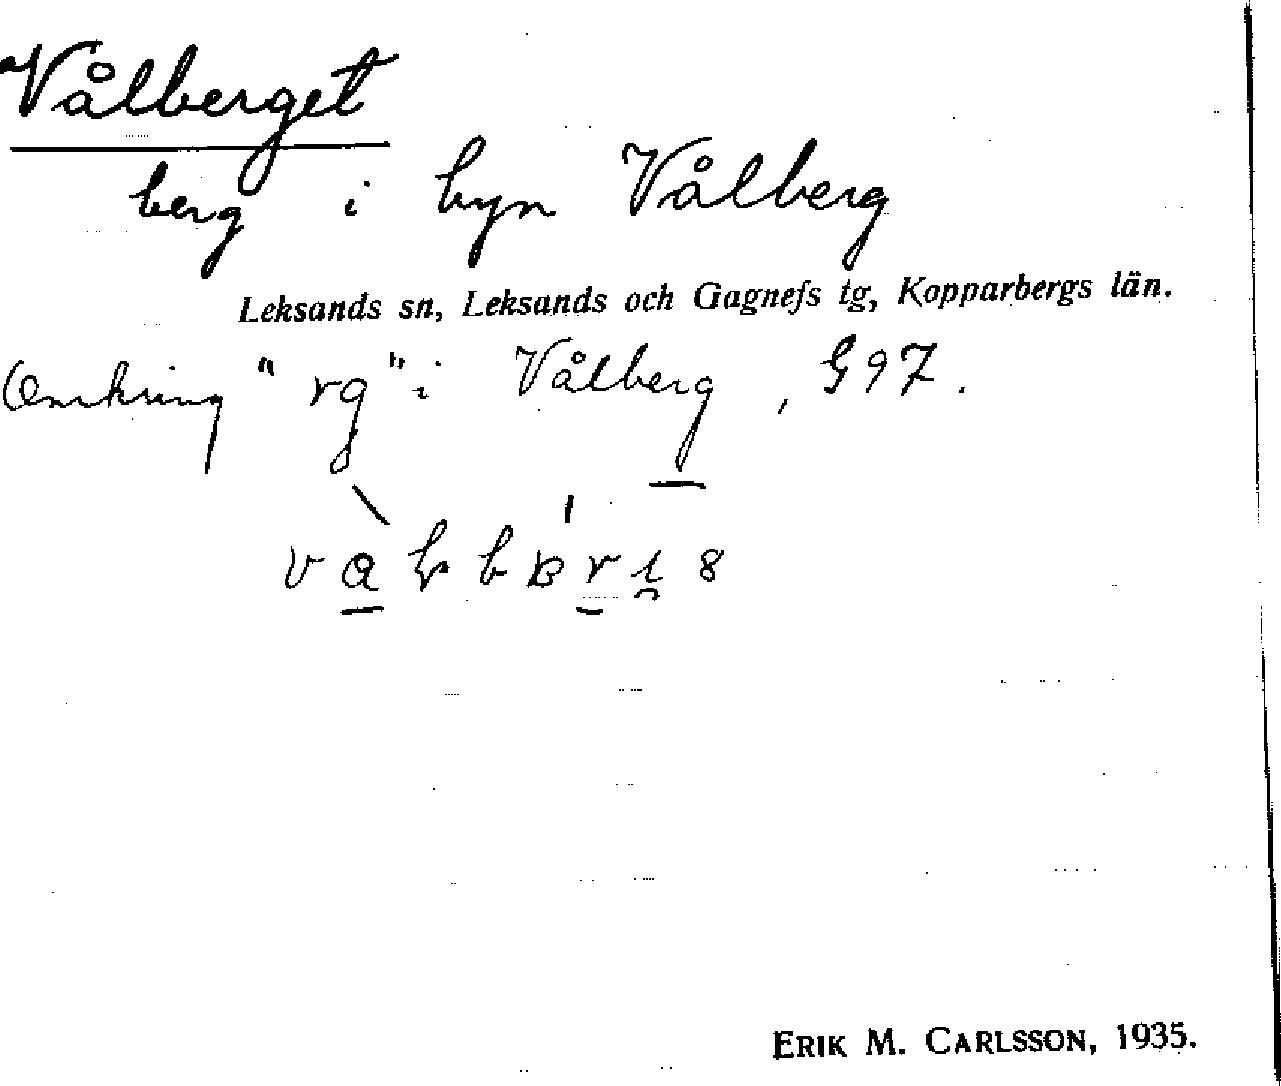 Vålberget
berg i byn Vålberg
Leksands sn, Leksands och Gagnefs tg, Kopparbergs län.
Omkring "rg" i Vålberg, G97.
ERIK M. CARLSSON, 1935.